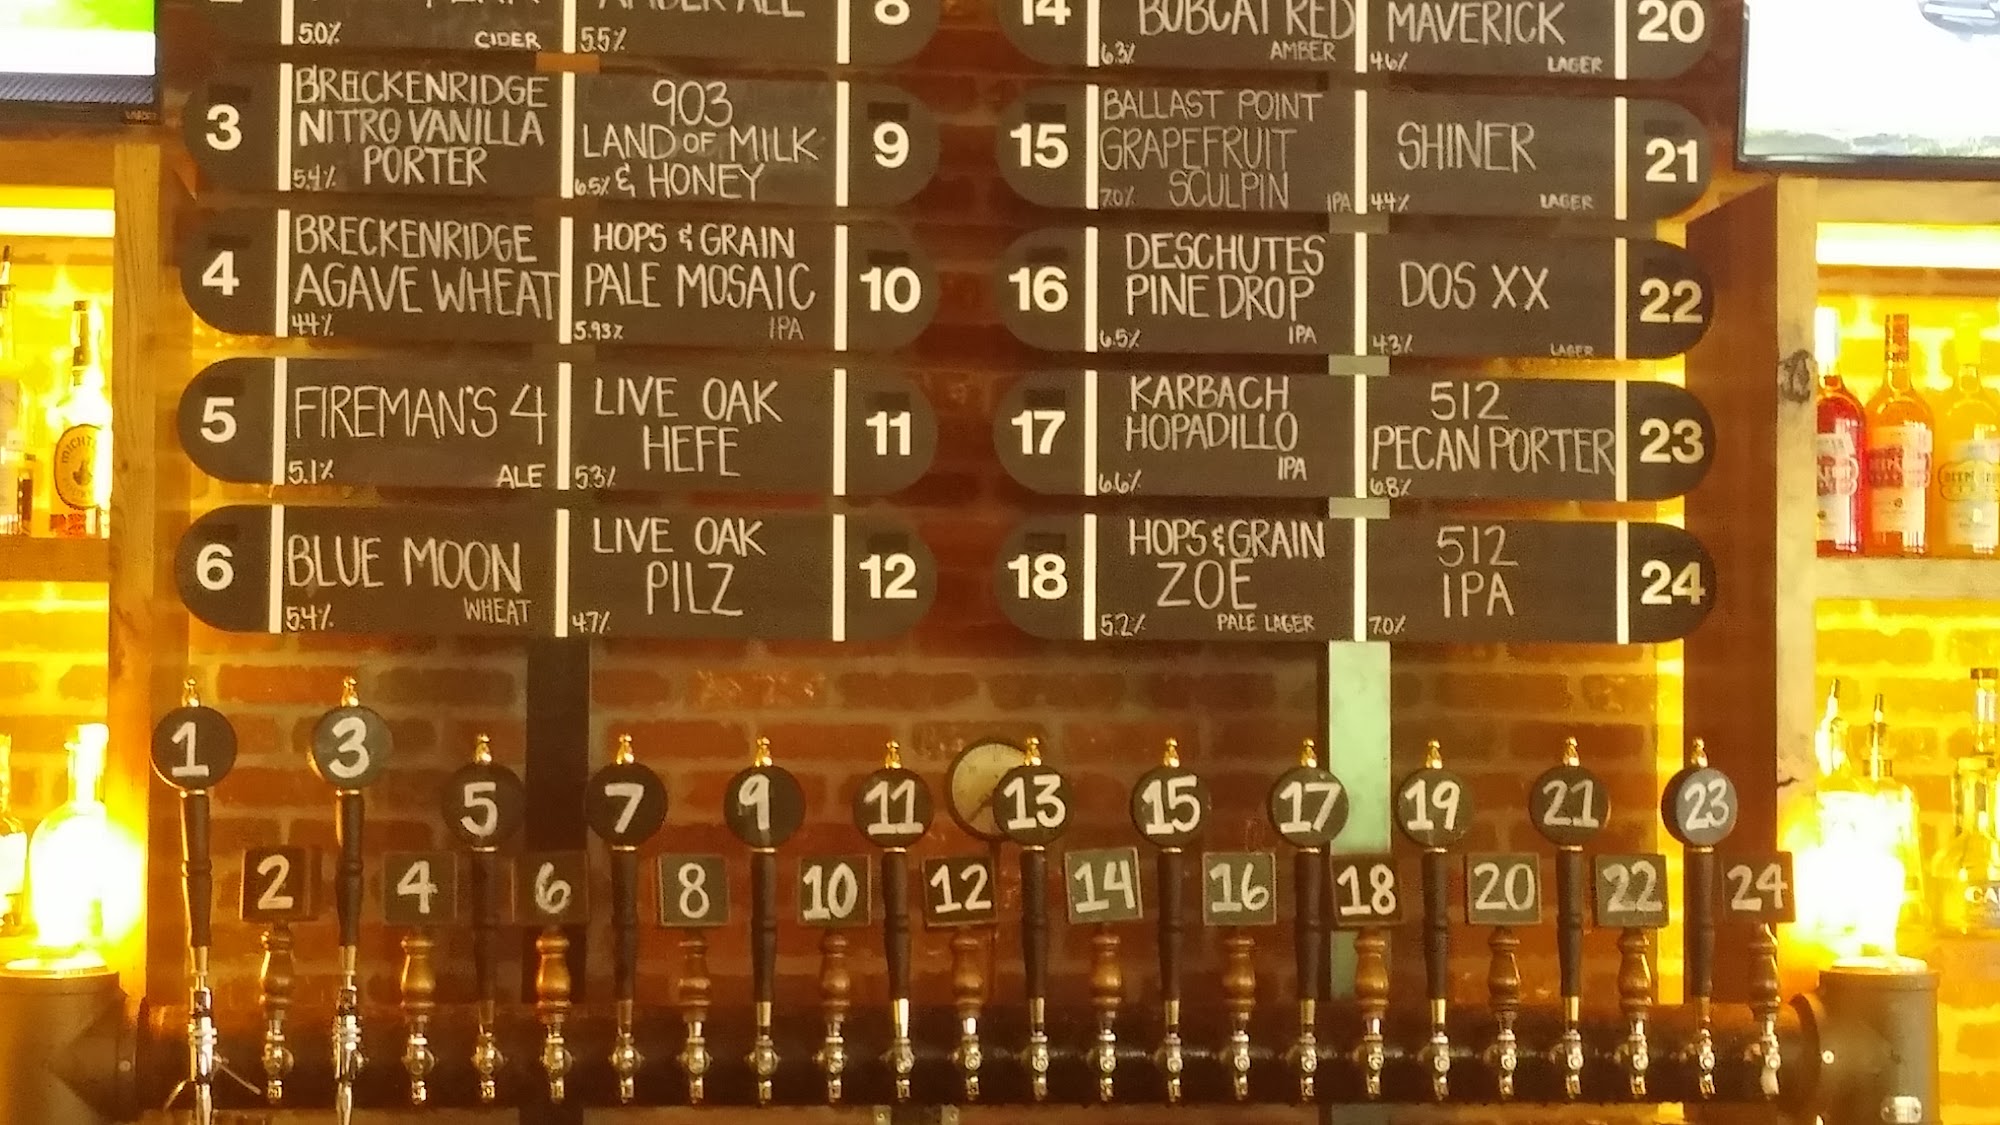 5.0% CIDER
AMBER ALE
5.5%
8
3
BRECKENRIDGE
NITRO VANILLA
PORTER
5.4%
903
LAND OF MILK
& HONEY
6.5%
9
4
BRECKENRIDGE
AGAVE WHEAT
4.4%
HOPS & GRAIN
PALE MOSAIC
5.93% IPA
10
5
FIREMAN'S 4
5.1% ALE
LIVE OAK
HEFE
5.3%
11
6
BLUE MOON
5.4% WHEAT
LIVE OAK
PILZ
4.7%
12
14
BOBCAT RED
6.3% AMBER
MAVERICK
4.6% LAGER
20
15
BALLAST POINT
GRAPEFRUIT
SCULPIN
7.0% IPA
SHINER
4.4% LAGER
21
16
DESCHUTES
PINE DROP
6.5% IPA
DOS XX
4.3% LAGER
22
17
KARBACH
HOPADILLO
6.6% IPA
512
PECAN PORTER
6.8%
23
18
HOPS & GRAIN
ZOE
5.2% PALE LAGER
512
IPA
7.0%
24
1 3 5 7 9 11 13 15 17 19 21 23
2 4 6 8 10 12 14 16 18 20 22 24